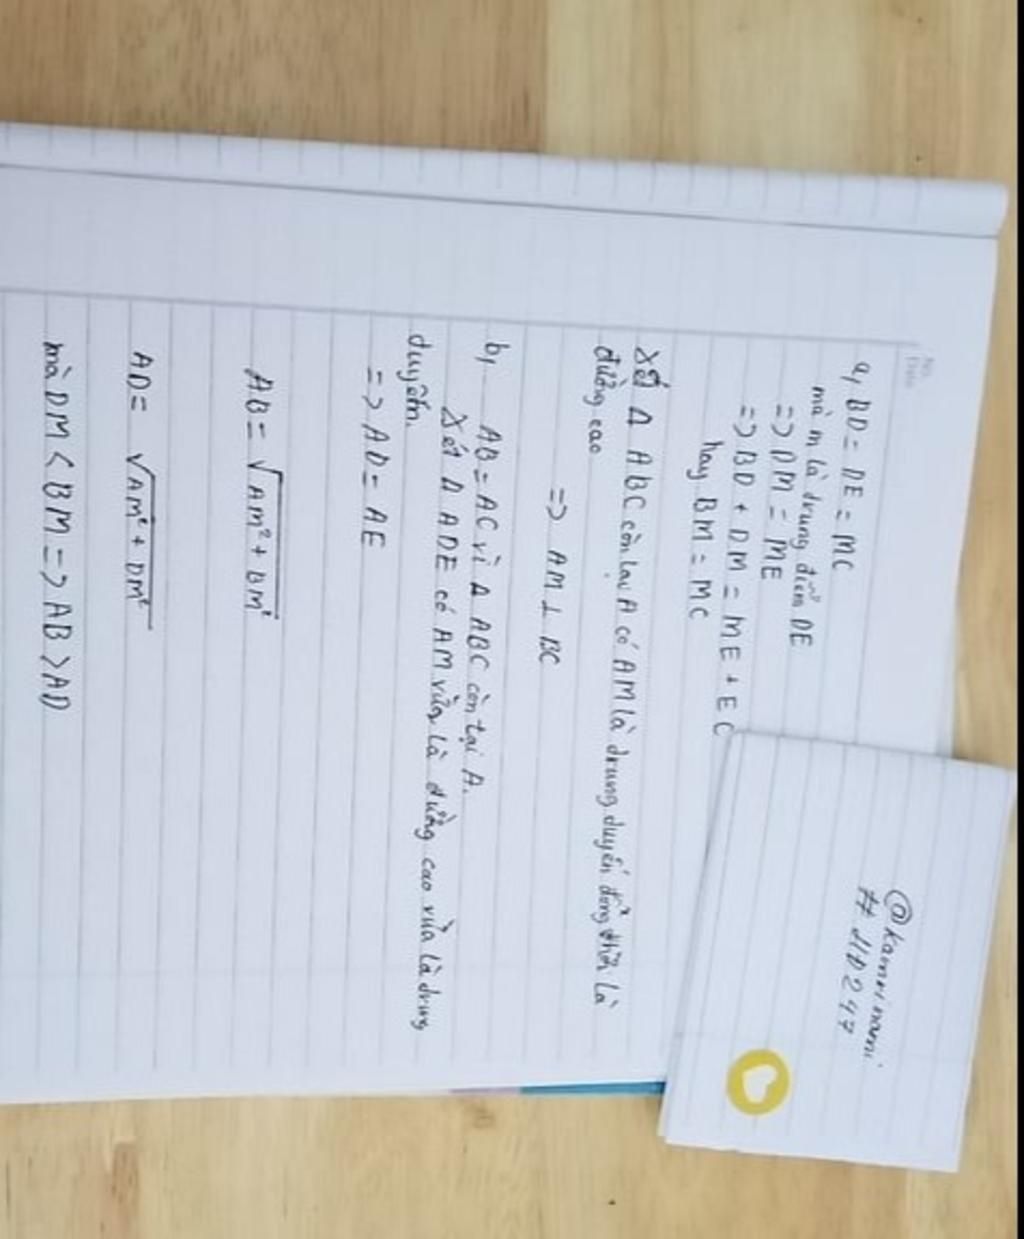 No.
Date
a, BD = DE = MC
mà m là trung điểm DE
=> DM = ME
=> BD + DM = ME + EC
hay BM = MC
Xét Δ ABC còn lại A có AM là trung duyến đồng thời là
đường cao
=> AM ⊥ BC
b, AB = AC vì Δ ABC còn tại A.
Xét Δ ADE có AM vừa là đường cao vừa là trung
duyến.
=> AD = AE
AB = √AM² + BM²
AD = √AM² + DM²
mà DM < BM => AB > AD
@kamrinami